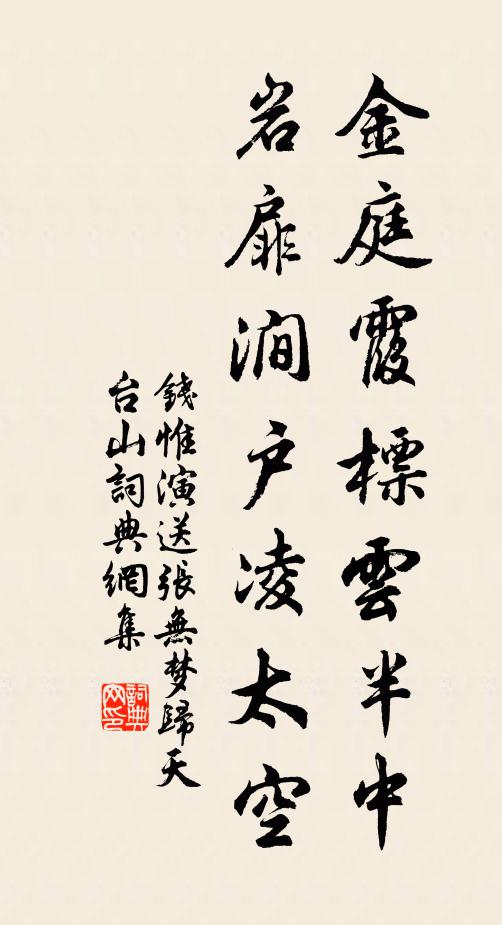 金庭霞標雲半中
岩扉澗户凌太空
錢惟演送張無梦歸天
台山詞典網集
詞典
网印